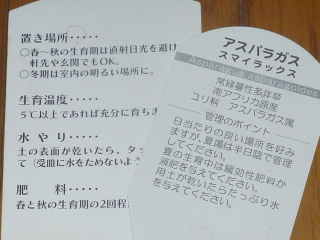 置き場所・・・・・
○春～秋の生育期は直射日光を避け
軒先や玄関でもOK。
○冬期は室内の明るい場所に。
生育温度・・・・・
5℃以上であれば充分に育ちま
水やり・・・・・
土の表面が乾いたら、タッ
て（受皿に水をためないよう
肥　料・・・・・
春と秋の生育期の2回程
アスパラガス
スマイラックス
常緑蔓性多年草
南アフリカ原産
ユリ科　アスパラガス属
管理のポイント
日当たりの良い場所を好み
ますが、夏場は半日陰で管理
してください。
夏の生育中は緩効性肥料か
液肥を与えてください。
用土が乾いたらたっぷり水
を与えてください。